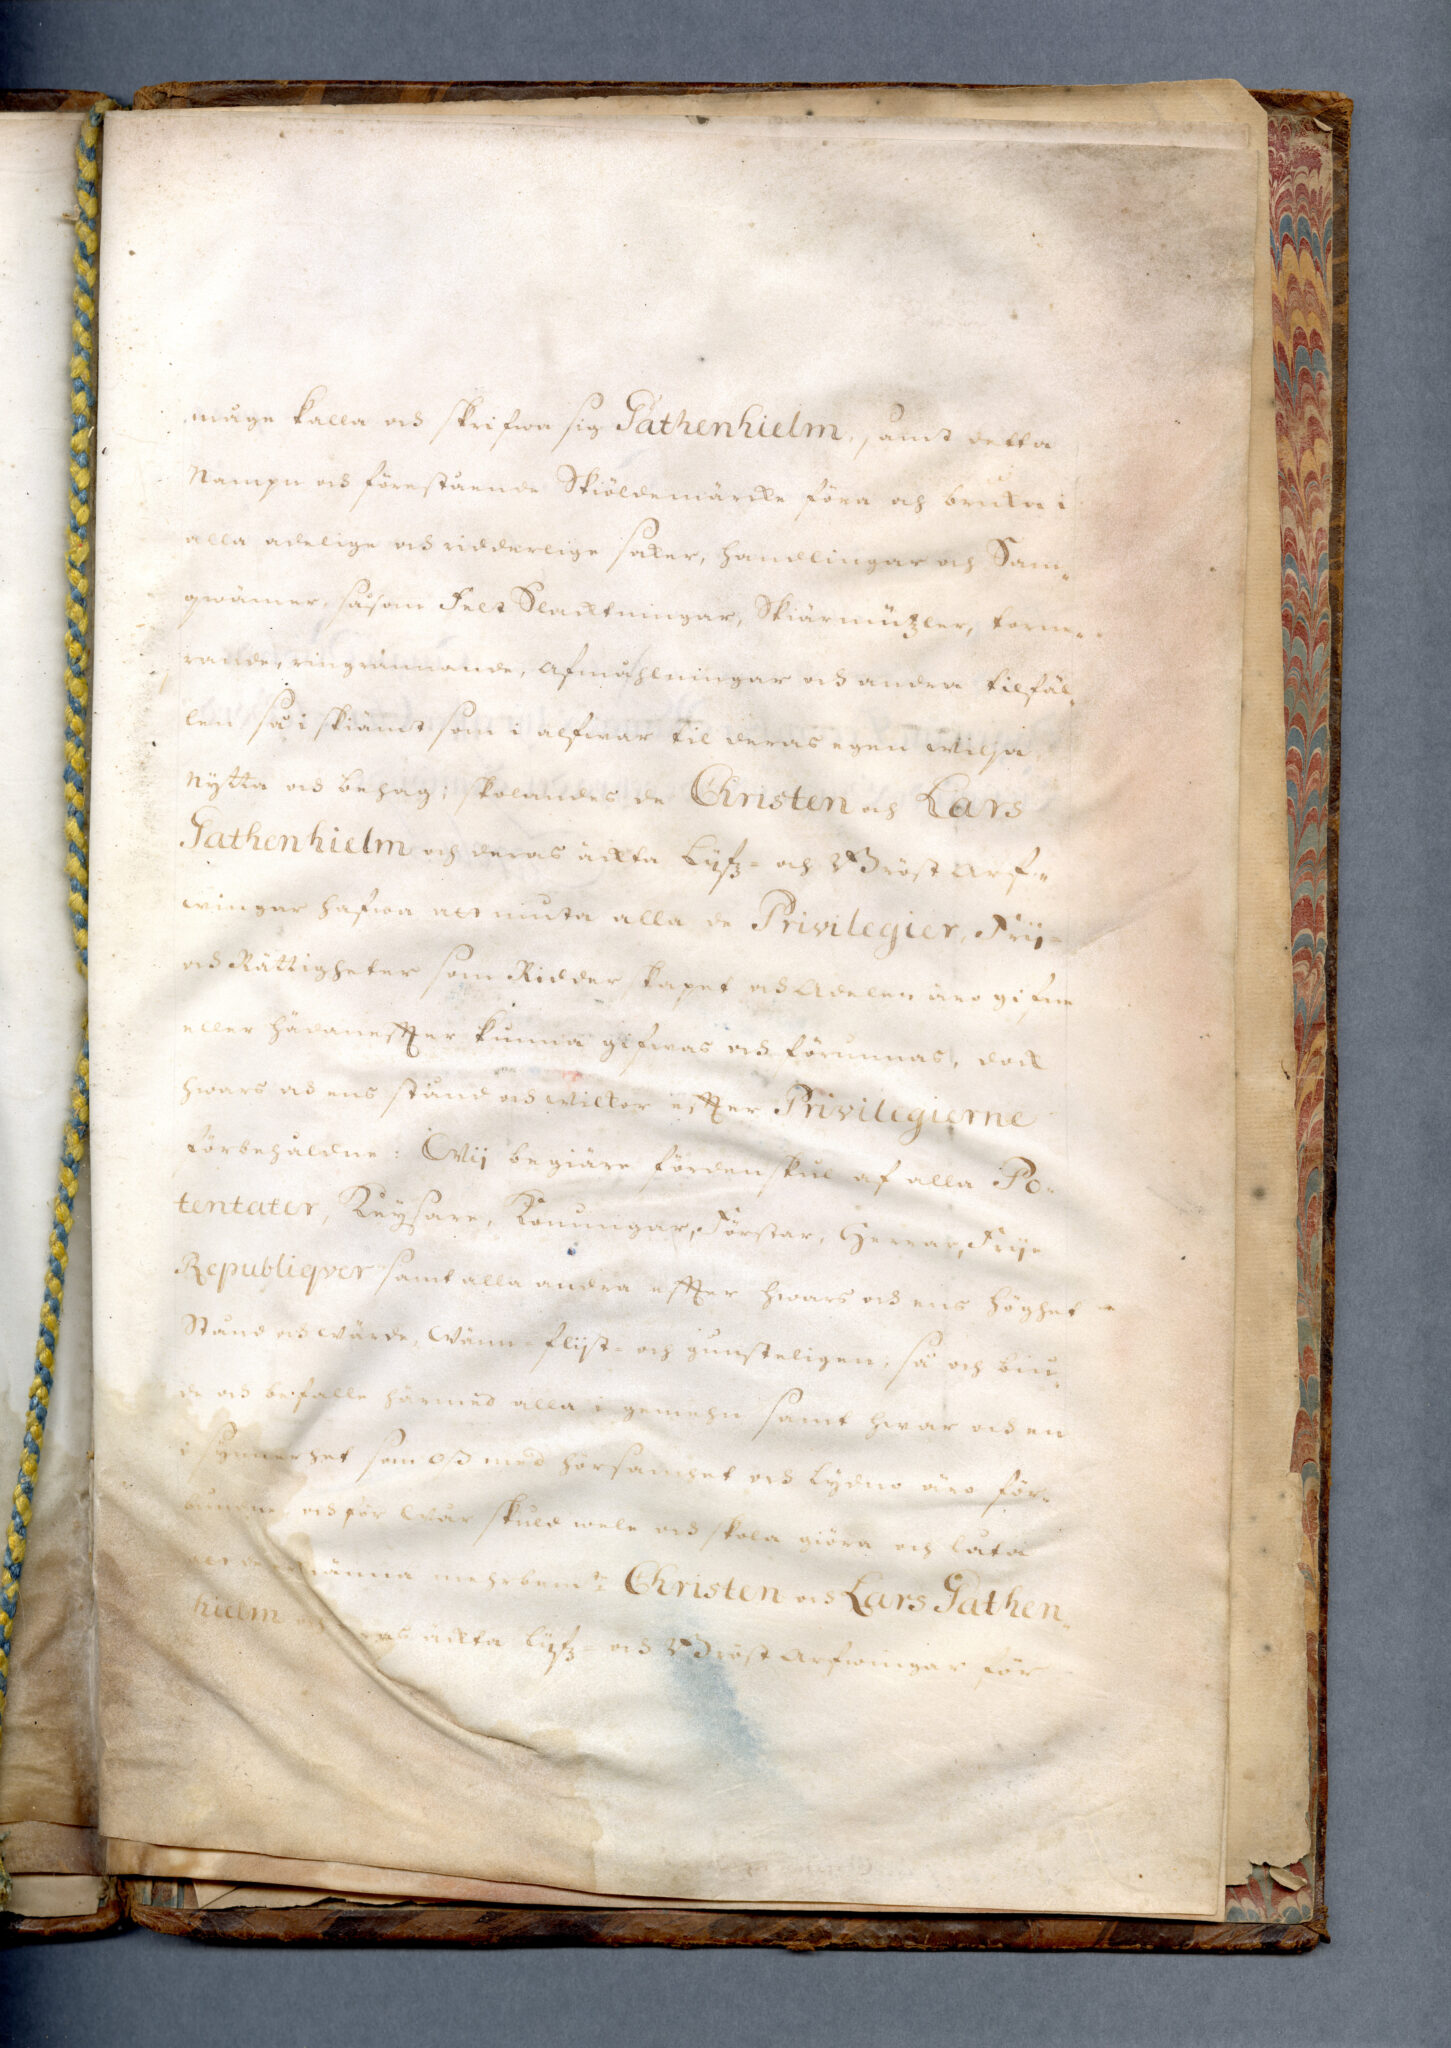 måge kalla och skrifwa sig Gathenhielm, samt detta
Nampn och förestående Skiöldemärcke föra och bruka i
alla adelige och ridderlige saker, handlingar och Sam-
qwämer, såsom Felt Slachtningar, Skiärmützler, torne-
rande, ringrännande, afmåhlningar och andra tilfäl-
len så i skiämt som i alfwar til deras egen wilja,
nytta och behag; skolandes de Christen och Lars
Gathenhielm och deras äckta Lijfz- och Bröst Arf-
wingar hafwa att niuta alla de Privilegier, Frij-
och Rättigheter som Ridderskapet och Adelen äro gifne
eller hädaneffter kunna gifwas och förunnas, dock
hwars och ens stånd och wilkor effter Privilegierne
förbehåldne: Wij begiäre fördenskul af alla Po-
tentater, Keysare, Konungar, Förstar, Herrar, Frije
Republiqver samt alla andra effter hwars och ens höghet
Stånd och wärde, Wänn- flijt- och gunsteligen, så och biu-
de och befalle härmed alla i gemehn samt hwar och en
i synnerhet som Oß med hörsamhet och Lydno äro för-
bundne, och för Wår skuld wele och skola giöra och låta
att de erkänna mehrbemte Christen och Lars Gathen-
hielm och deras äckta Lijfz- och Bröst Arfwingar för